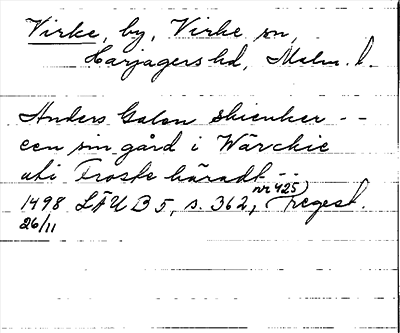 Virke, by, Virke sn,
Harjagers hd, Malm. l.
Anders Galen skienker - -
een sin gård i Wärckie
uti Froste häradt - -
1498 LÄUB 5, s. 362, (nr 425) regest.
26/11